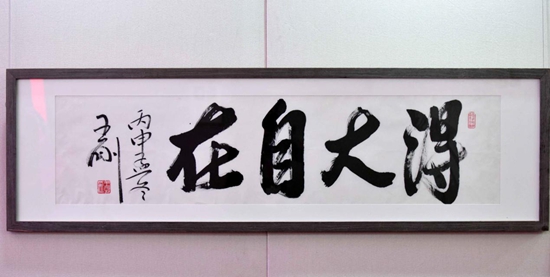 得大自在
丙申孟冬
王刚